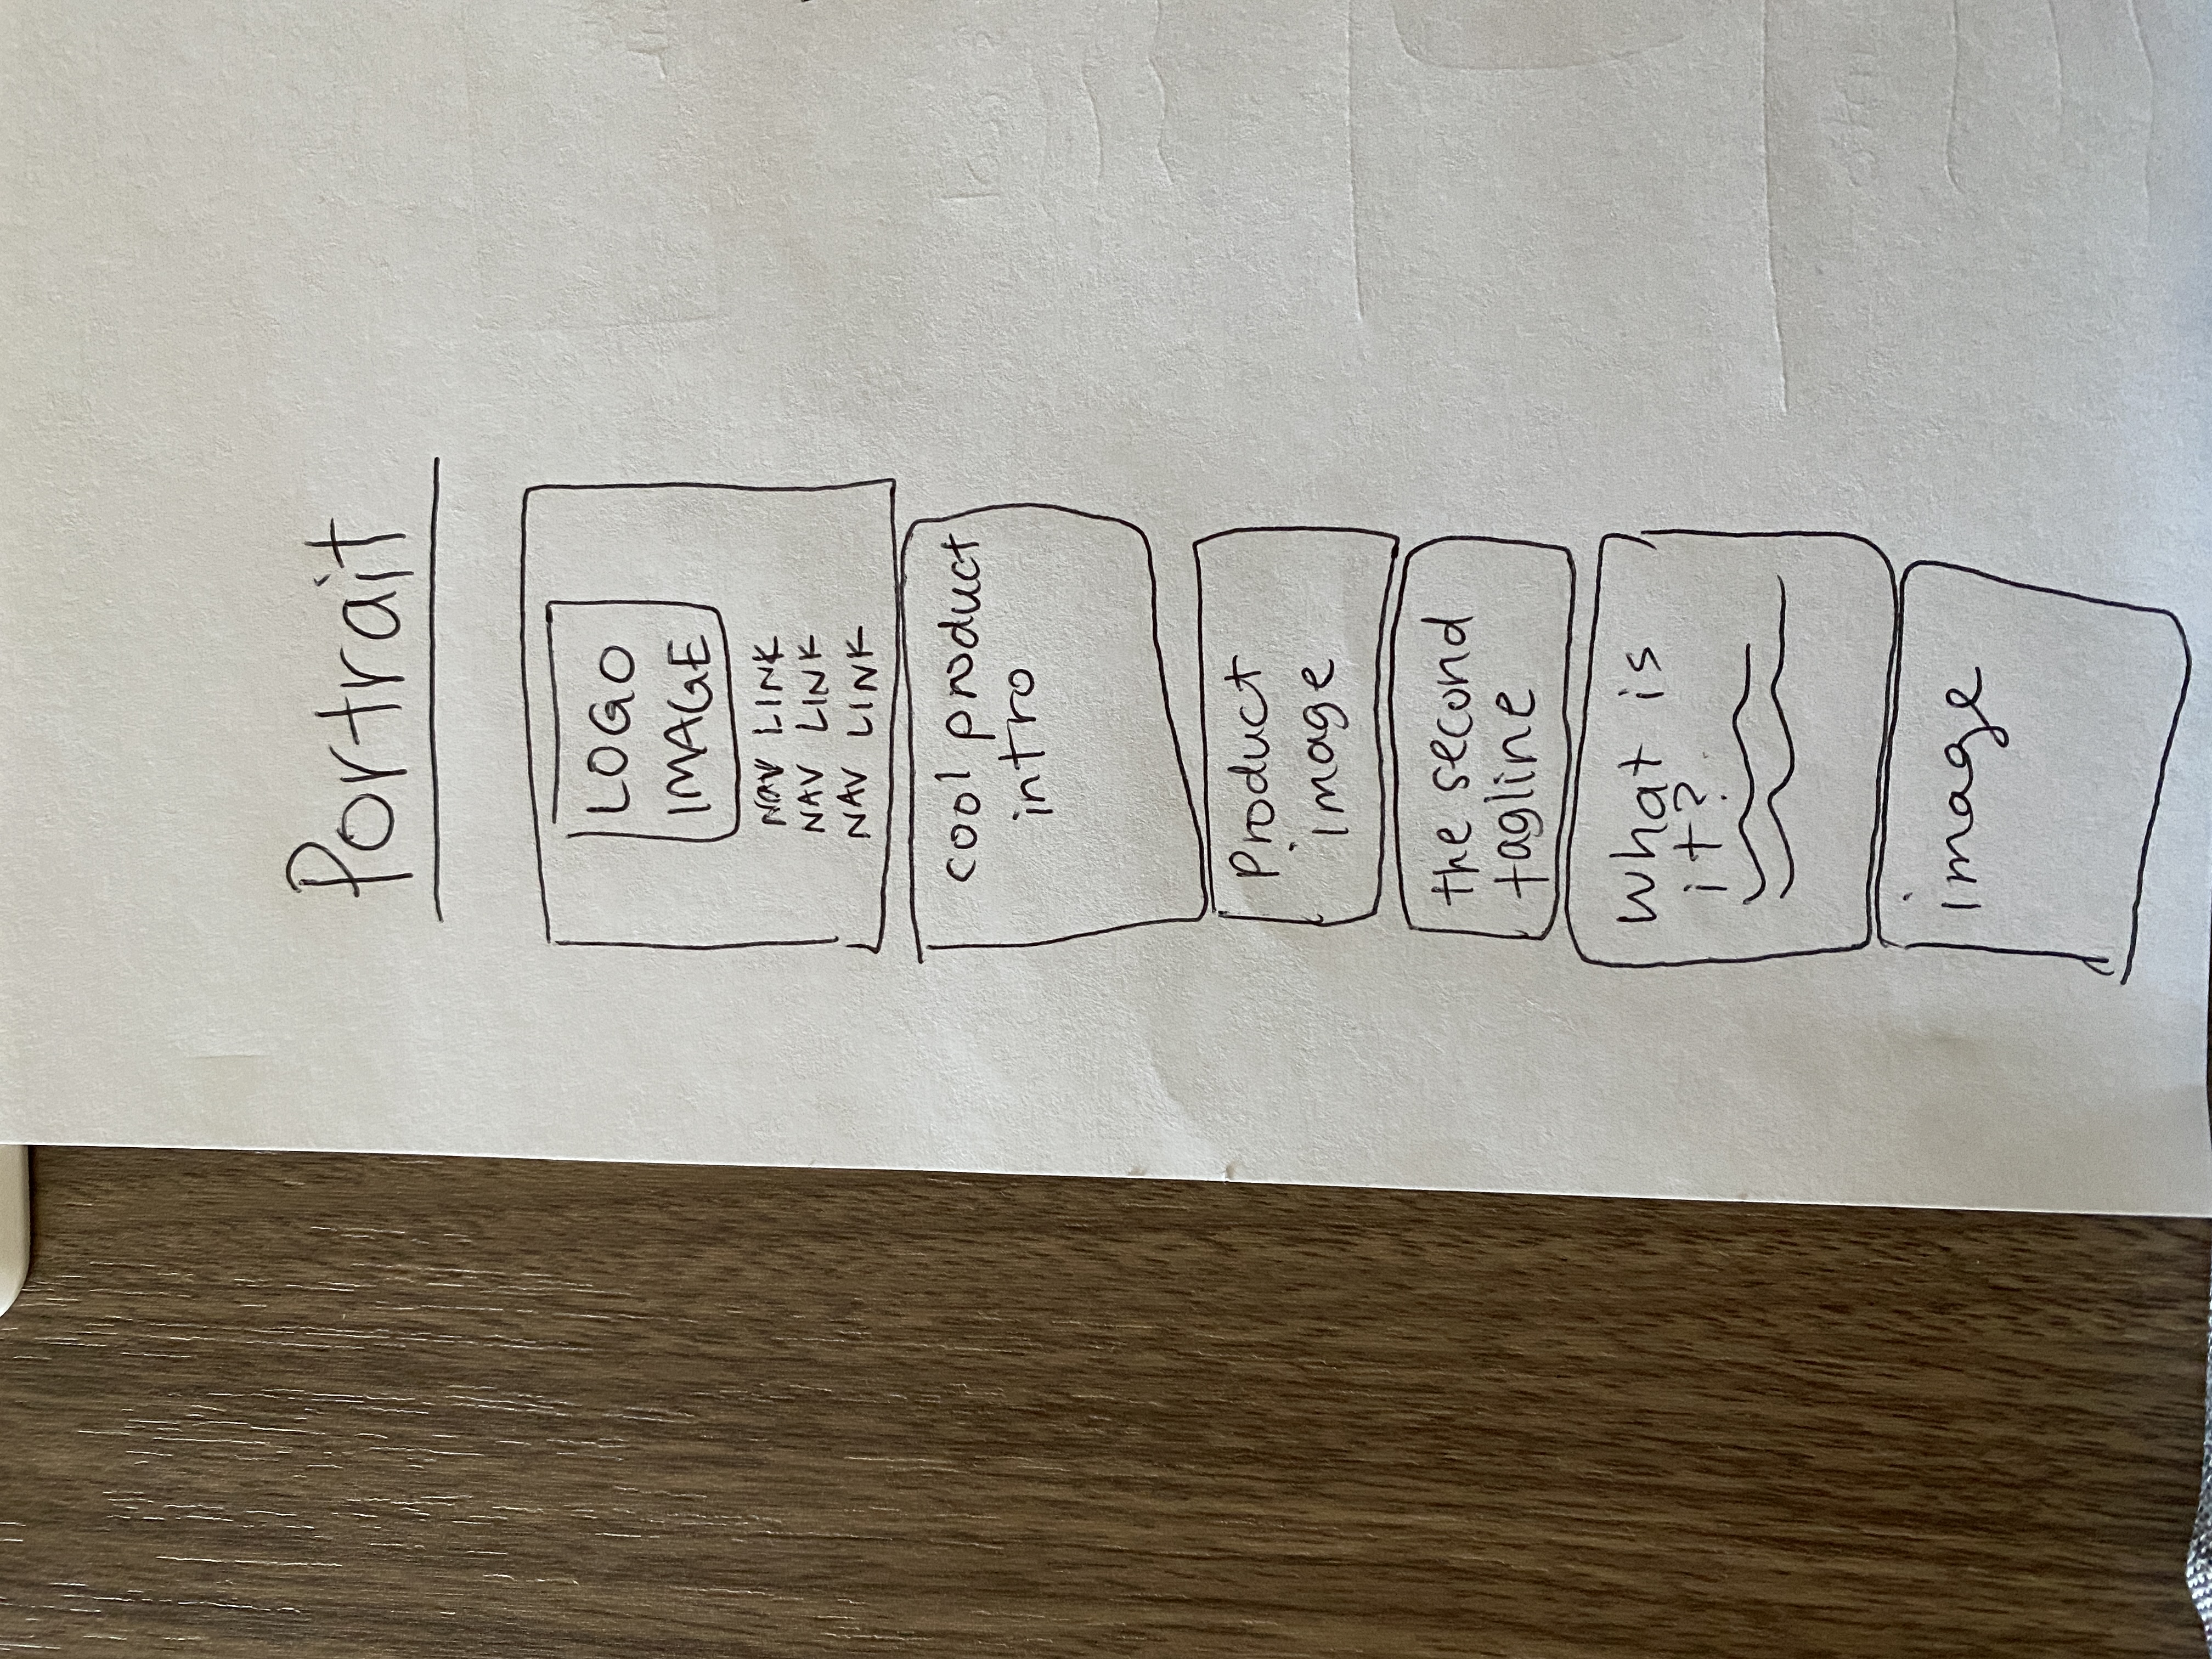 Portrait
LOGO
IMAGE
NAV LINK
NAV LINK
NAV LINK
cool product
intro
Product
image
the second
tagline
What is
it?
image